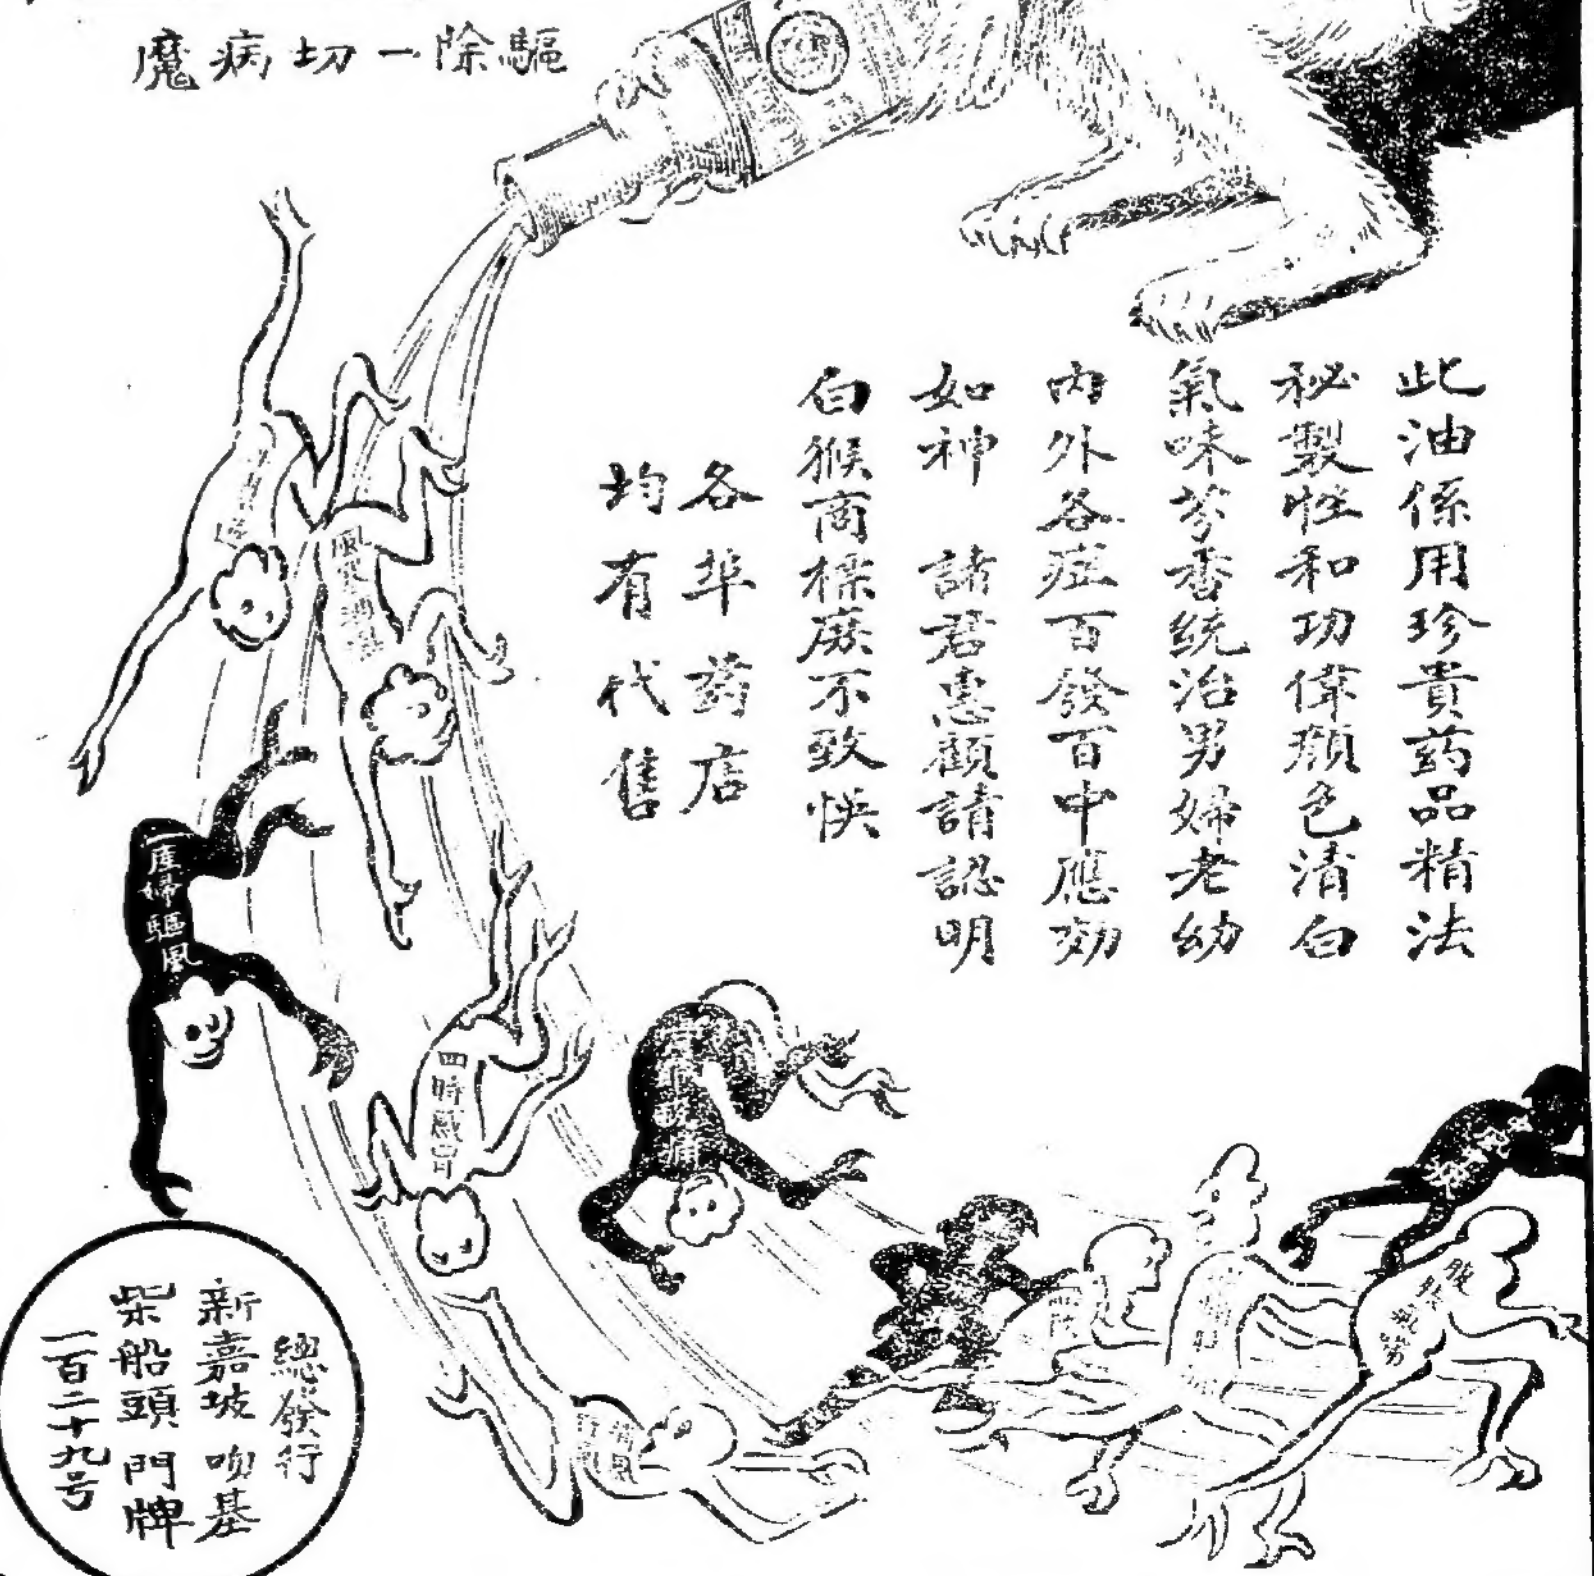 驅除一切病魔
此油係用珍貴葯品精法
秘製性和功偉顏色清白
氣味芬香統治男婦老幼
內外各症百發百中應効
如神 諸君惠顧請認明
白猴商標庶不致悞
各埠葯店
均有代售
產婦驅風
四時感冒
總發行
新嘉坡吻基
柴船頭門牌
一百二十九号